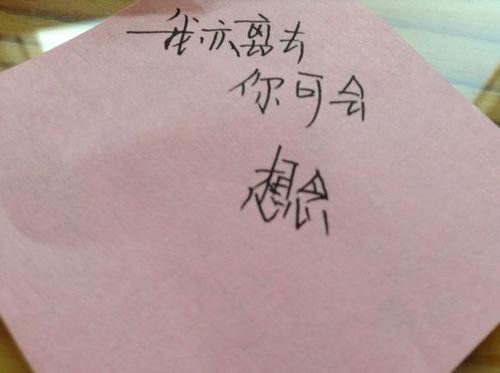 我亦离去
你可会
想念